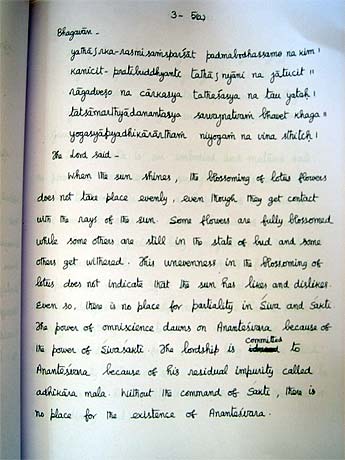 3 - 5a
Bhagavān -
yathā'rka-rasmisaṁsparśāt padmabodhassamo na kim |
kanicit-pratibuddhyante tathā'ṇyāni na jātucit ||
rāgadveṣo na cārkasya tatheśasya na tau yatah |
tatsāmarthyādanantasya sarvajñatvaṁ bhavet khaga ||
yogasyāpyadhikārārtham niyogaṁ na vina sthitiḥ |
The Lord said -
When the sun shines, the blossoming of lotus flowers
does not take place evenly, even though they get contact
with the rays of the sun. Some flowers are fully blossomed
while some others are still in the state of bud and some
others get withered. This unevenness in the blossoming of
lotus does not indicate that the sun has likes and dislikes.
Even so, there is no place for partiality in Śiva and Śakti.
The power of omniscience dawns on Ananteśvara because of
the power of Śivaśakti. The lordship is committed to
Ananteśvara because of his residual impurity called
adhikāra mala. Without the command of Śakti, there is
no place for the existence of Ananteśvara.